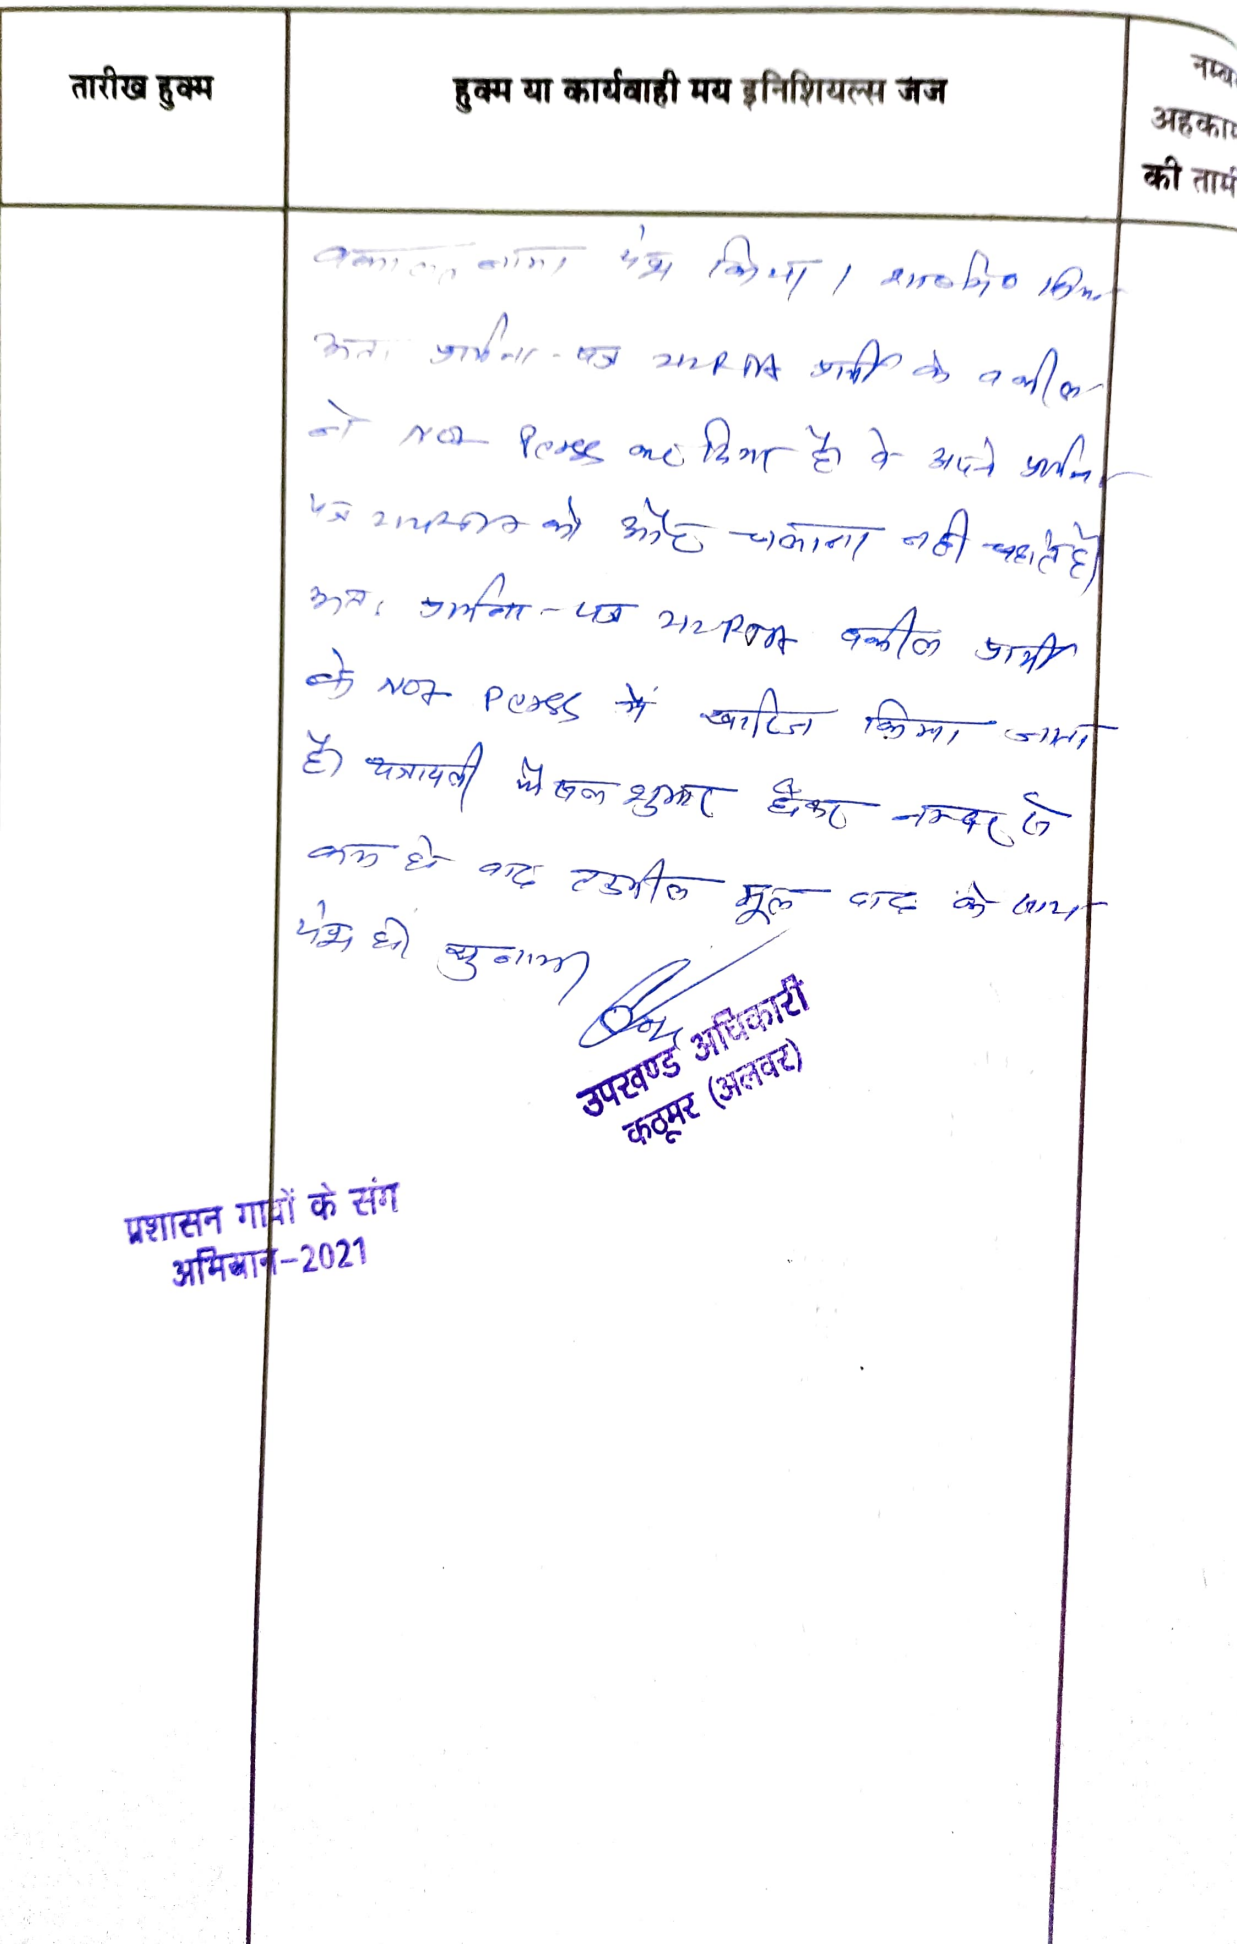 तारीख हुक्म
हुक्म या कार्यवाही मय इनिशियल्स जज
अहकाम
की तामी
वकालत नामा पेश किया। शा०मि० किया
अतः प्रार्थना-पत्र प्रार्थी के वकील
ने Not Press कर दिया है। वे अपने प्रार्थना
पत्र को और चलाना नही चहाते है।
अतः प्रार्थना-पत्र वकील प्रार्थी
के Not Press में खारिज किया जाता
है। पत्रावली फैसल शुमार होकर नम्बर से
कम हो बाद तकमील मूल वाद के साथ
पेश हो। सुनाया
उपखण्ड अधिकारी
कठूमर (अलवर)
प्रशासन गावों के संग
अभियान-2021